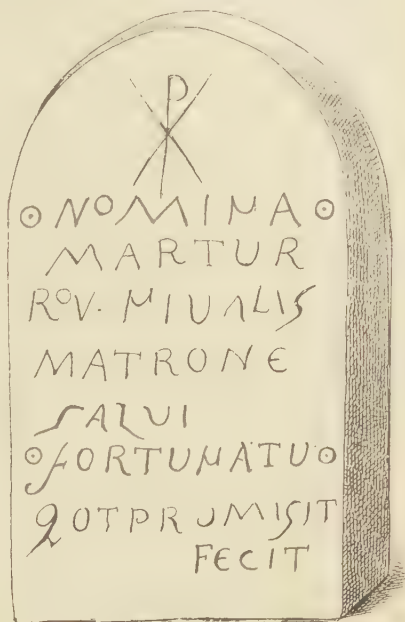 ⳩
NOMINA
MARTUR
ROV. NIUALIS
MATRONE
SALUI
FORTUNATU
QOTPROMISIT
FECIT